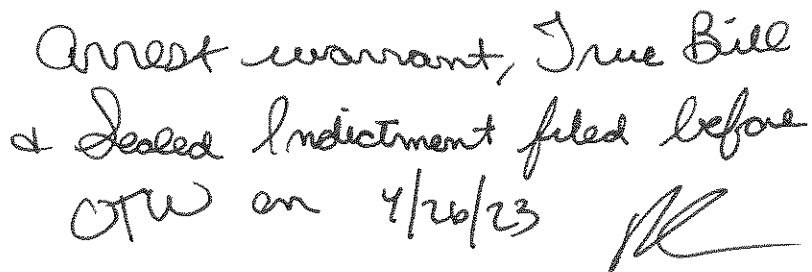 Arrest warrant, True Bill
& Sealed Indictment filed before
OTW on 4/26/23